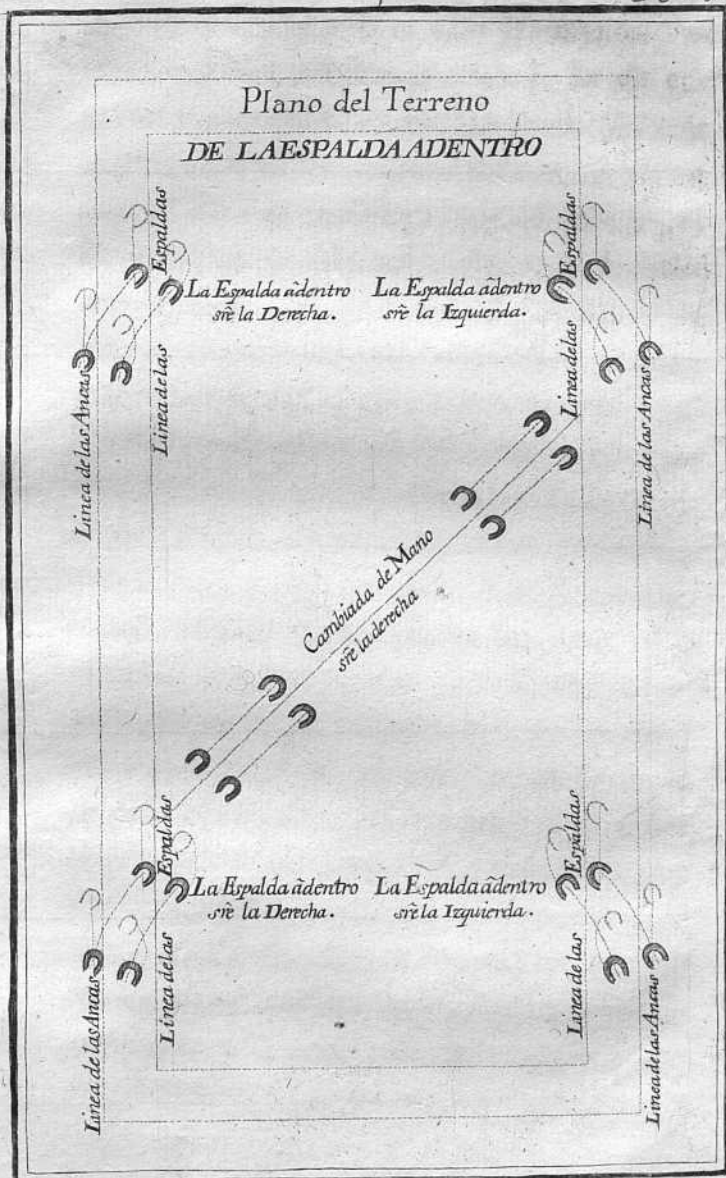 Plano del Terreno
DE LA ESPALDA ADENTRO
Linea de las Espaldas
La Espalda ãdentro
sr̃e la Derecha.
La Espalda ãdentro
sr̃e la Izquierda.
Linea de las Espaldas
Linea de las Ancas
Linea de las Ancas
Cambiada de Mano
sr̃e la derecha
Linea de las Espaldas
La Espalda ãdentro
sr̃e la Derecha.
La Espalda ãdentro
sr̃e la Izquierda.
Linea de las Espaldas
Linea de las Ancas
Linea de las Ancas